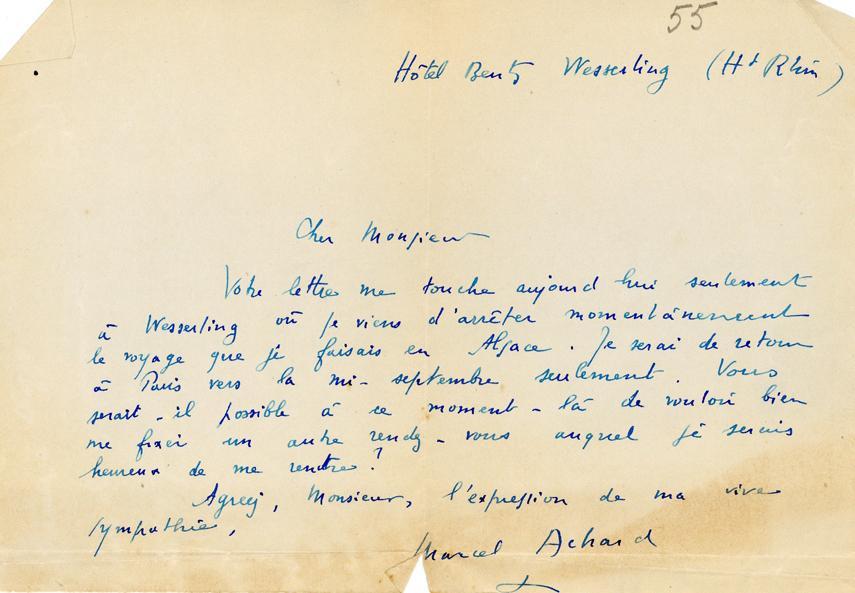 55
Hôtel Bentz Wesserling (Ht Rhin)
Cher Monsieur
Votre lettre me touche aujourd hui seulement
à Wesserling où je viens d'arrêter momentanément
le voyage que je faisais en Alsace. Je serai de retour
à Paris vers la mi-septembre seulement. Vous
serait-il possible à ce moment-là de vouloir bien
me fixer un autre rendez-vous auquel je serais
heureux de me rendre ?
Agreez, Monsieur, l'expression de ma vive
sympathie,
Marcel Achard